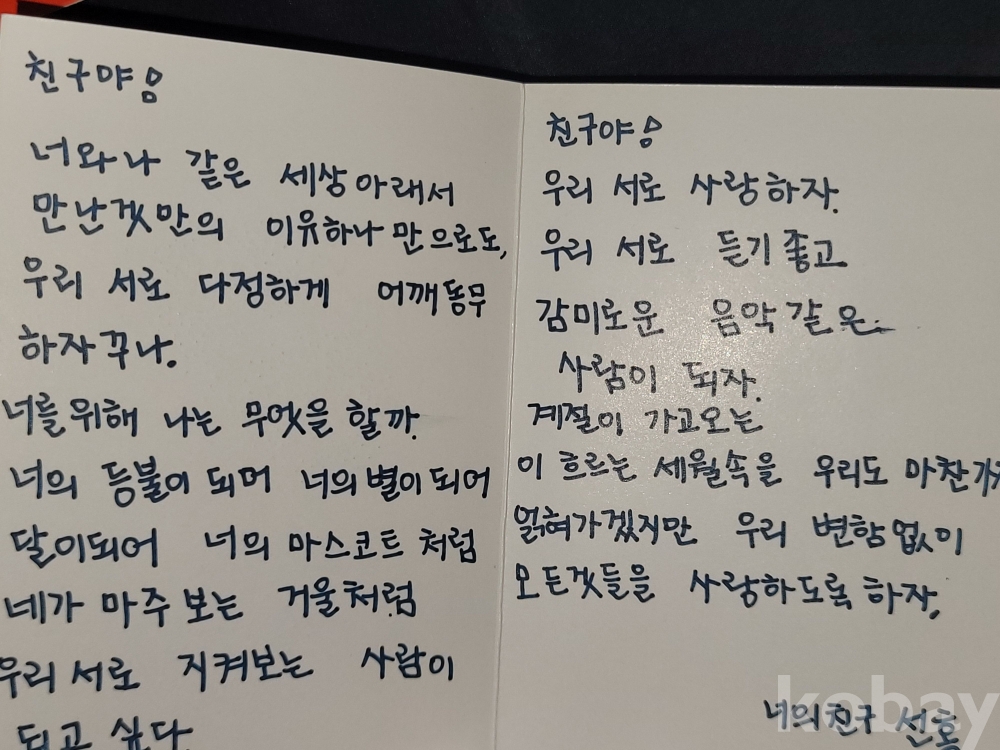 친구야!
너와 나 같은 세상 아래서
만난것만의 이유하나 만으로도,
우리 서로 다정하게 어깨동무
하자꾸나.
너를 위해 나는 무엇을 할까.
너의 등불이 되며 너의 별이 되어
달이되어 너의 마스코트 처럼
네가 마주 보는 거울처럼
우리 서로 지켜보는 사람이
되고 싶다
친구야!
우리 서로 사랑하자.
우리 서로 듣기 좋고
감미로운 음악 같은
사람이 되자.
계절이 가고오는
이 흐르는 세월속을 우리도 마찬가지
얽혀가겠지만 우리 변함없이
모든것들을 사랑하도록 하자.
너의 친구 선호
kobay